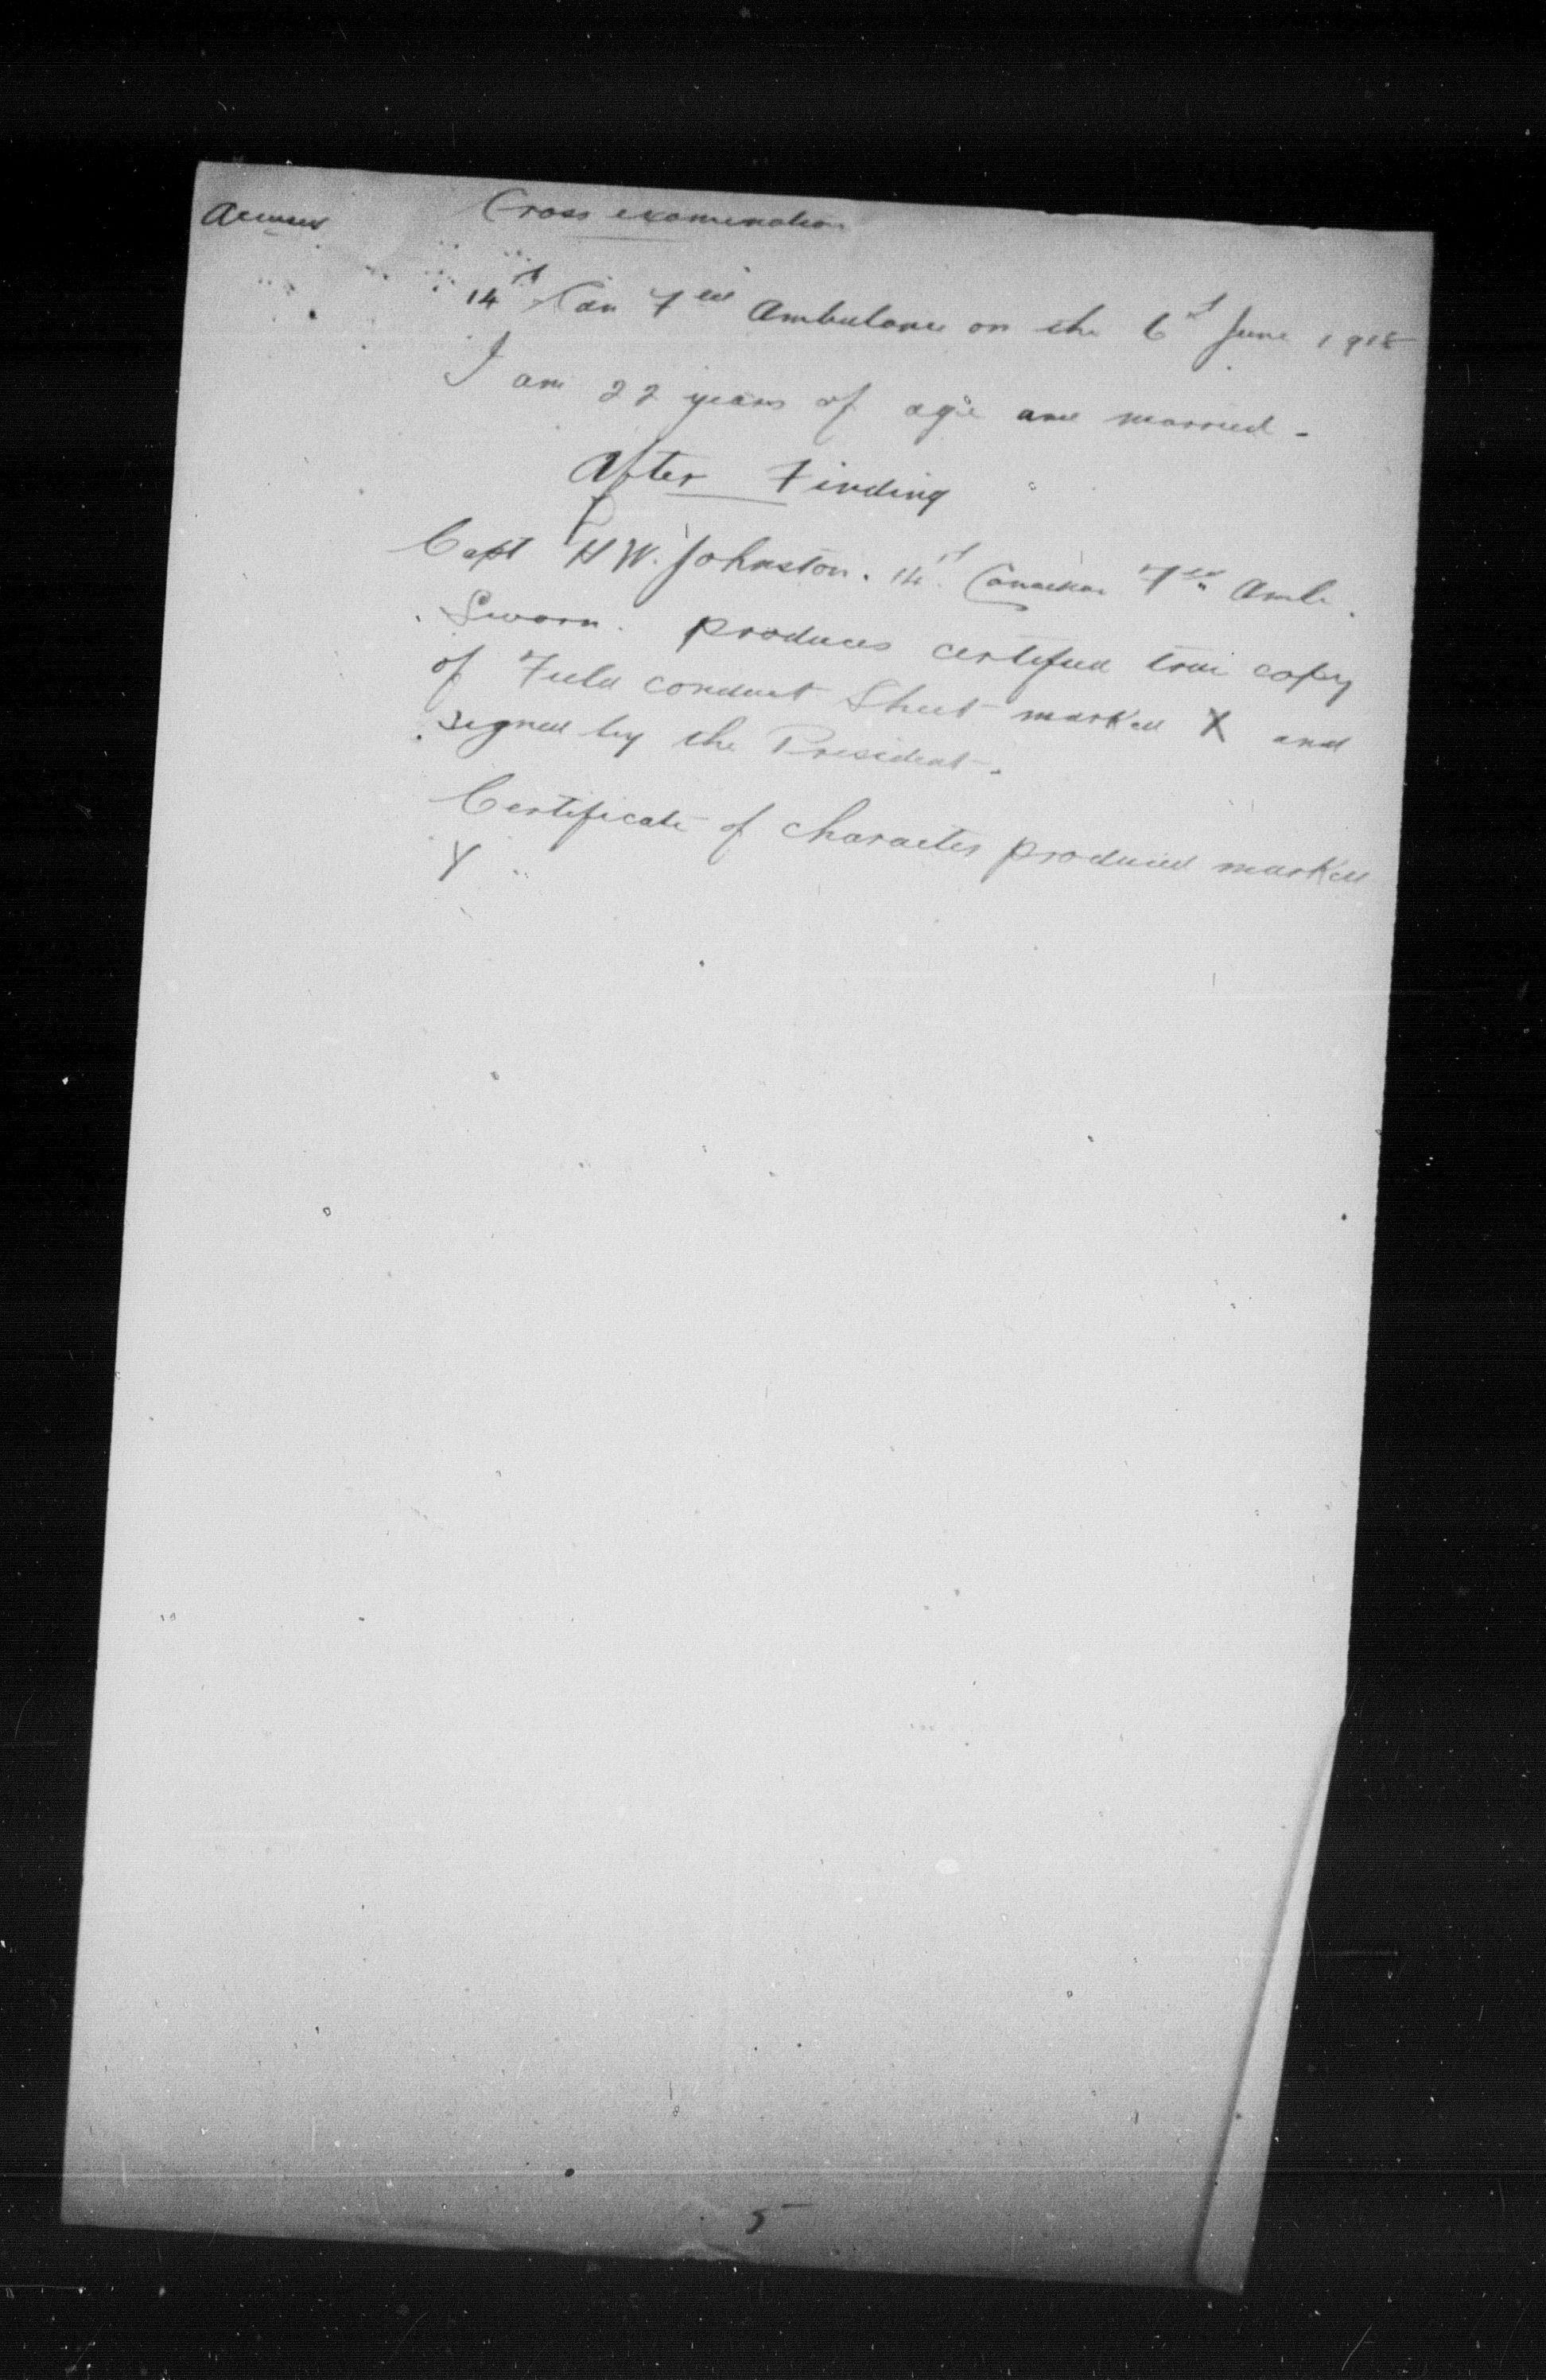 Accused Cross examination
14th Can Fld Ambulance on the 6th June 1918
I am 22 years of age and married -
After Finding
Capt H W. Johnston. 14th Canadian Fld Amb.
Sworn. produces certified true copy
of Field conduct Sheet marked X and
signed by the President.
Certificate of character produced marked
Y
5